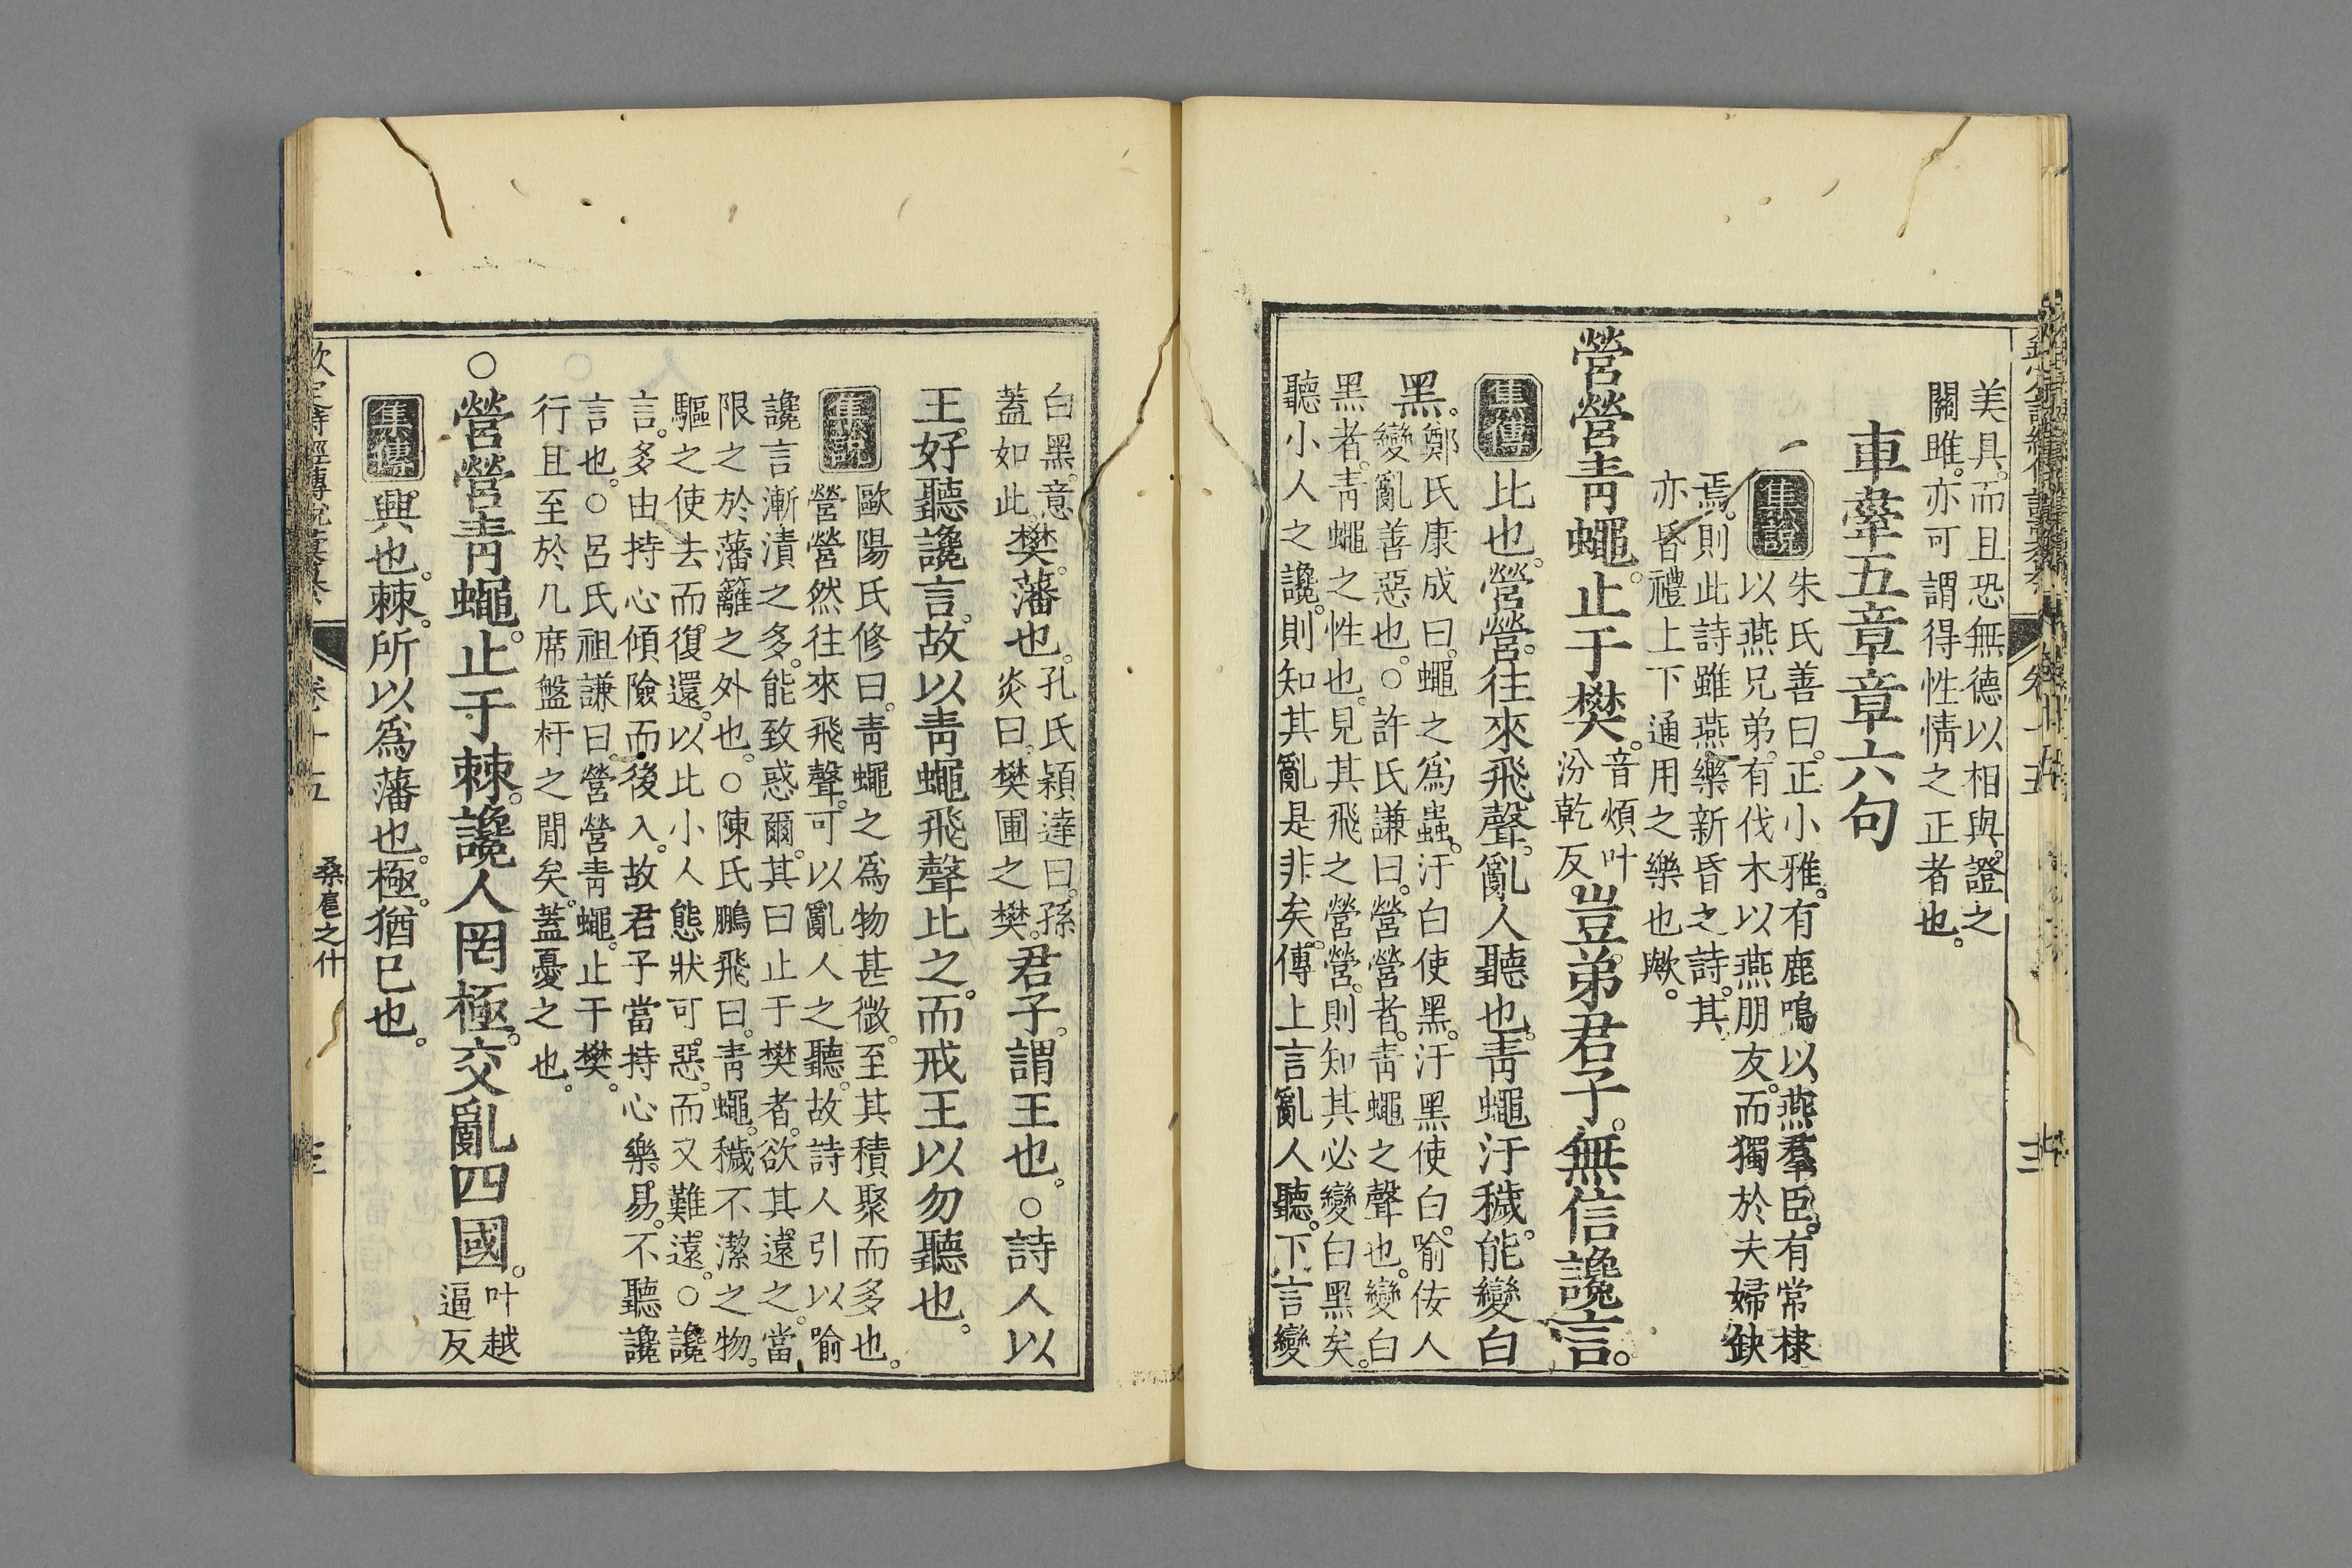 美具。而且恐無德以相與。證之
關雎。亦可謂得性情之正者也。
車舝五章章六句
集說
朱氏善曰。正小雅。有鹿鳴以燕羣臣。有常棣
以燕兄弟。有伐木以燕朋友。而獨於夫婦缺
焉。則此詩雖燕樂新昏之詩。其
亦昏禮上下通用之樂也歟。
營營青蠅。止于樊。音煩叶
汾乾反。豈弟君子。無信讒言。
集傳 比也。營營。往來飛聲。亂人聽也。青蠅汙穢。能變白
黑。鄭氏康成曰。蠅之爲蟲。汙白使黑。汙黑使白。喻佞人
變亂善惡也。○許氏謙曰。營營者。青蠅之聲也。變白
黑者。青蠅之性也。見其飛之營營。則知其必變白黑矣。
聽小人之讒。則知其亂是非矣。傳上言亂人聽。下言變
白黑。意
蓋如此。樊。藩也。孔氏穎達曰。孫
炎曰。樊圃之樊。君子。謂王也。○詩人以
王。好聽讒言。故以青蠅飛聲比之。而戒王以勿聽也。
集說
歐陽氏修曰。青蠅之爲物甚微。至其積聚而多也。
營營然往來飛聲。可以亂人之聽。故詩人引以喻
讒言漸漬之多。能致惑爾。其曰止于樊者。欲其遠之。當
限之於藩籬之外也。○陳氏鵬飛曰。青蠅。穢不潔之物。
驅之使去而復還。以比小人態狀可惡。而又難遠。○讒
言。多由持心傾險而後入。故君子當持心樂易。不聽讒
言也。○呂氏祖謙曰。營營青蠅。止于樊。
行且至於几席盤杅之閒矣。蓋憂之也。
○營營青蠅。止于棘。讒人罔極。交亂四國。叶越
逼反
集傳 興也。棘。所以爲藩也。極。猶已也。
桑扈之什